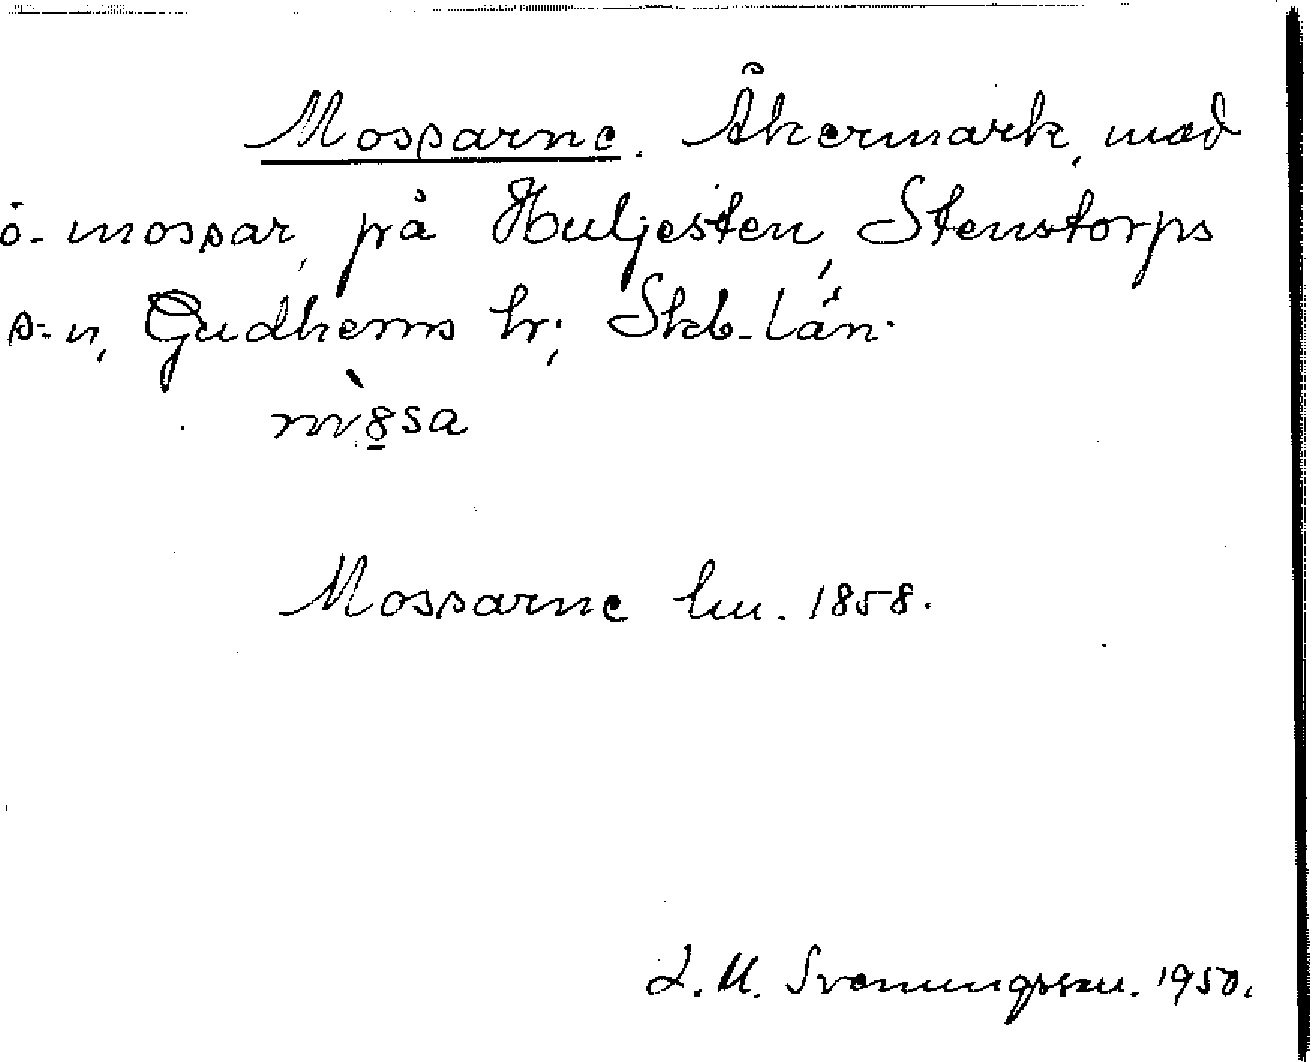 Mossarne. Åkermark, med
ö-mossar, på Huljesten, Stenstorps
s-n, Gudhems hr; Skb-län.
mòsa
Mossarne lm. 1858.
L. M. Svenungsson. 1950.